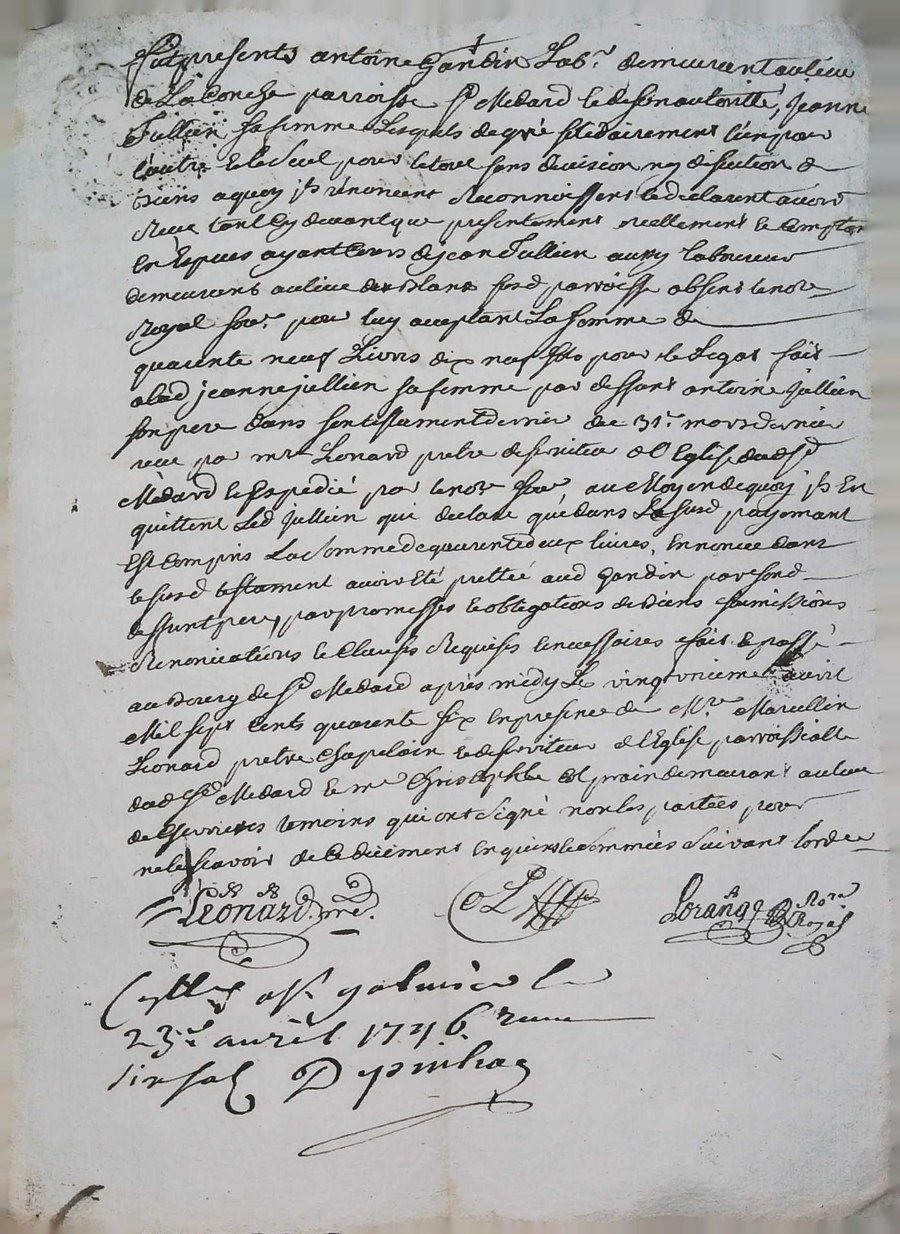 fut present antoine Gandin Lab.r demeurant au lieu
de La Conche parroisse St Medard le desd autorité, Jeanne
Jullien sa femme Lesquels de gré solidairement l'un pour
l'autre et le seul pour le tout sans division ny discution de
biens a quoy ils renoncent Reconnoissent et declarent avoir
Receu tant cy devant que presentement reellement et comptant
en Especes ayant cours de jean Jullien aussy laboureur
demeurant au lieu des susd parroisse absent le no.re
Royal sous.e pour luy acceptant La somme de
quarente neuf Livres dix neuf sols pour le Legat fait
alad jeanne jullien sa femme par deffunt antoine Jullien
son pere dans son testament dernier du 31.e mars dernier
receu par m.re Léonard pretre desserviteur de l'Eglise dud St
Medard et Expedié par le no.re sous.e au Moyen de quoy ils En
quittent Led Jullien qui declare que dans Le susd payemant
Est compris La somme de quarente deux livres, Ennoncé dans
le susd testament avoir été prettée aud Gandin par sond
deffunt pere, par promesses et obligations de biens soumissions
Renonciations et Clauses Requises et necessaires fait et passé
au bourg de St Medard après midy Le vingt unieme avril
Mil sept cents quarente six en presence de M.re Marcellin
Léonard pretre Chapelain et desserviteur de l'Eglise parroissialle
dud St Medard et m.e Christophle demeurant au lieu
de Chevrieres temoins qui ont signé non les parties pour
ne le scavoir de ce duement enquis et sommées suivant l'ordce
Léonard. pre.
Lorange No.re Royal
a St galmier le
23.e avril 1746
Depinhac